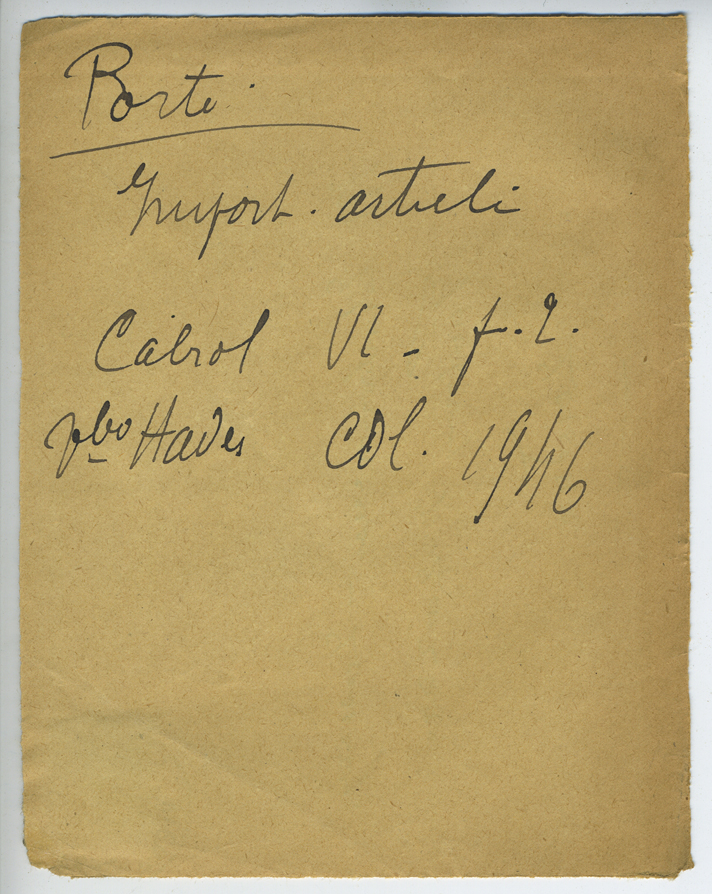 Porte.
Import. articoli
Cabrol VI - p. 2.
vbo Hades Col. 1946